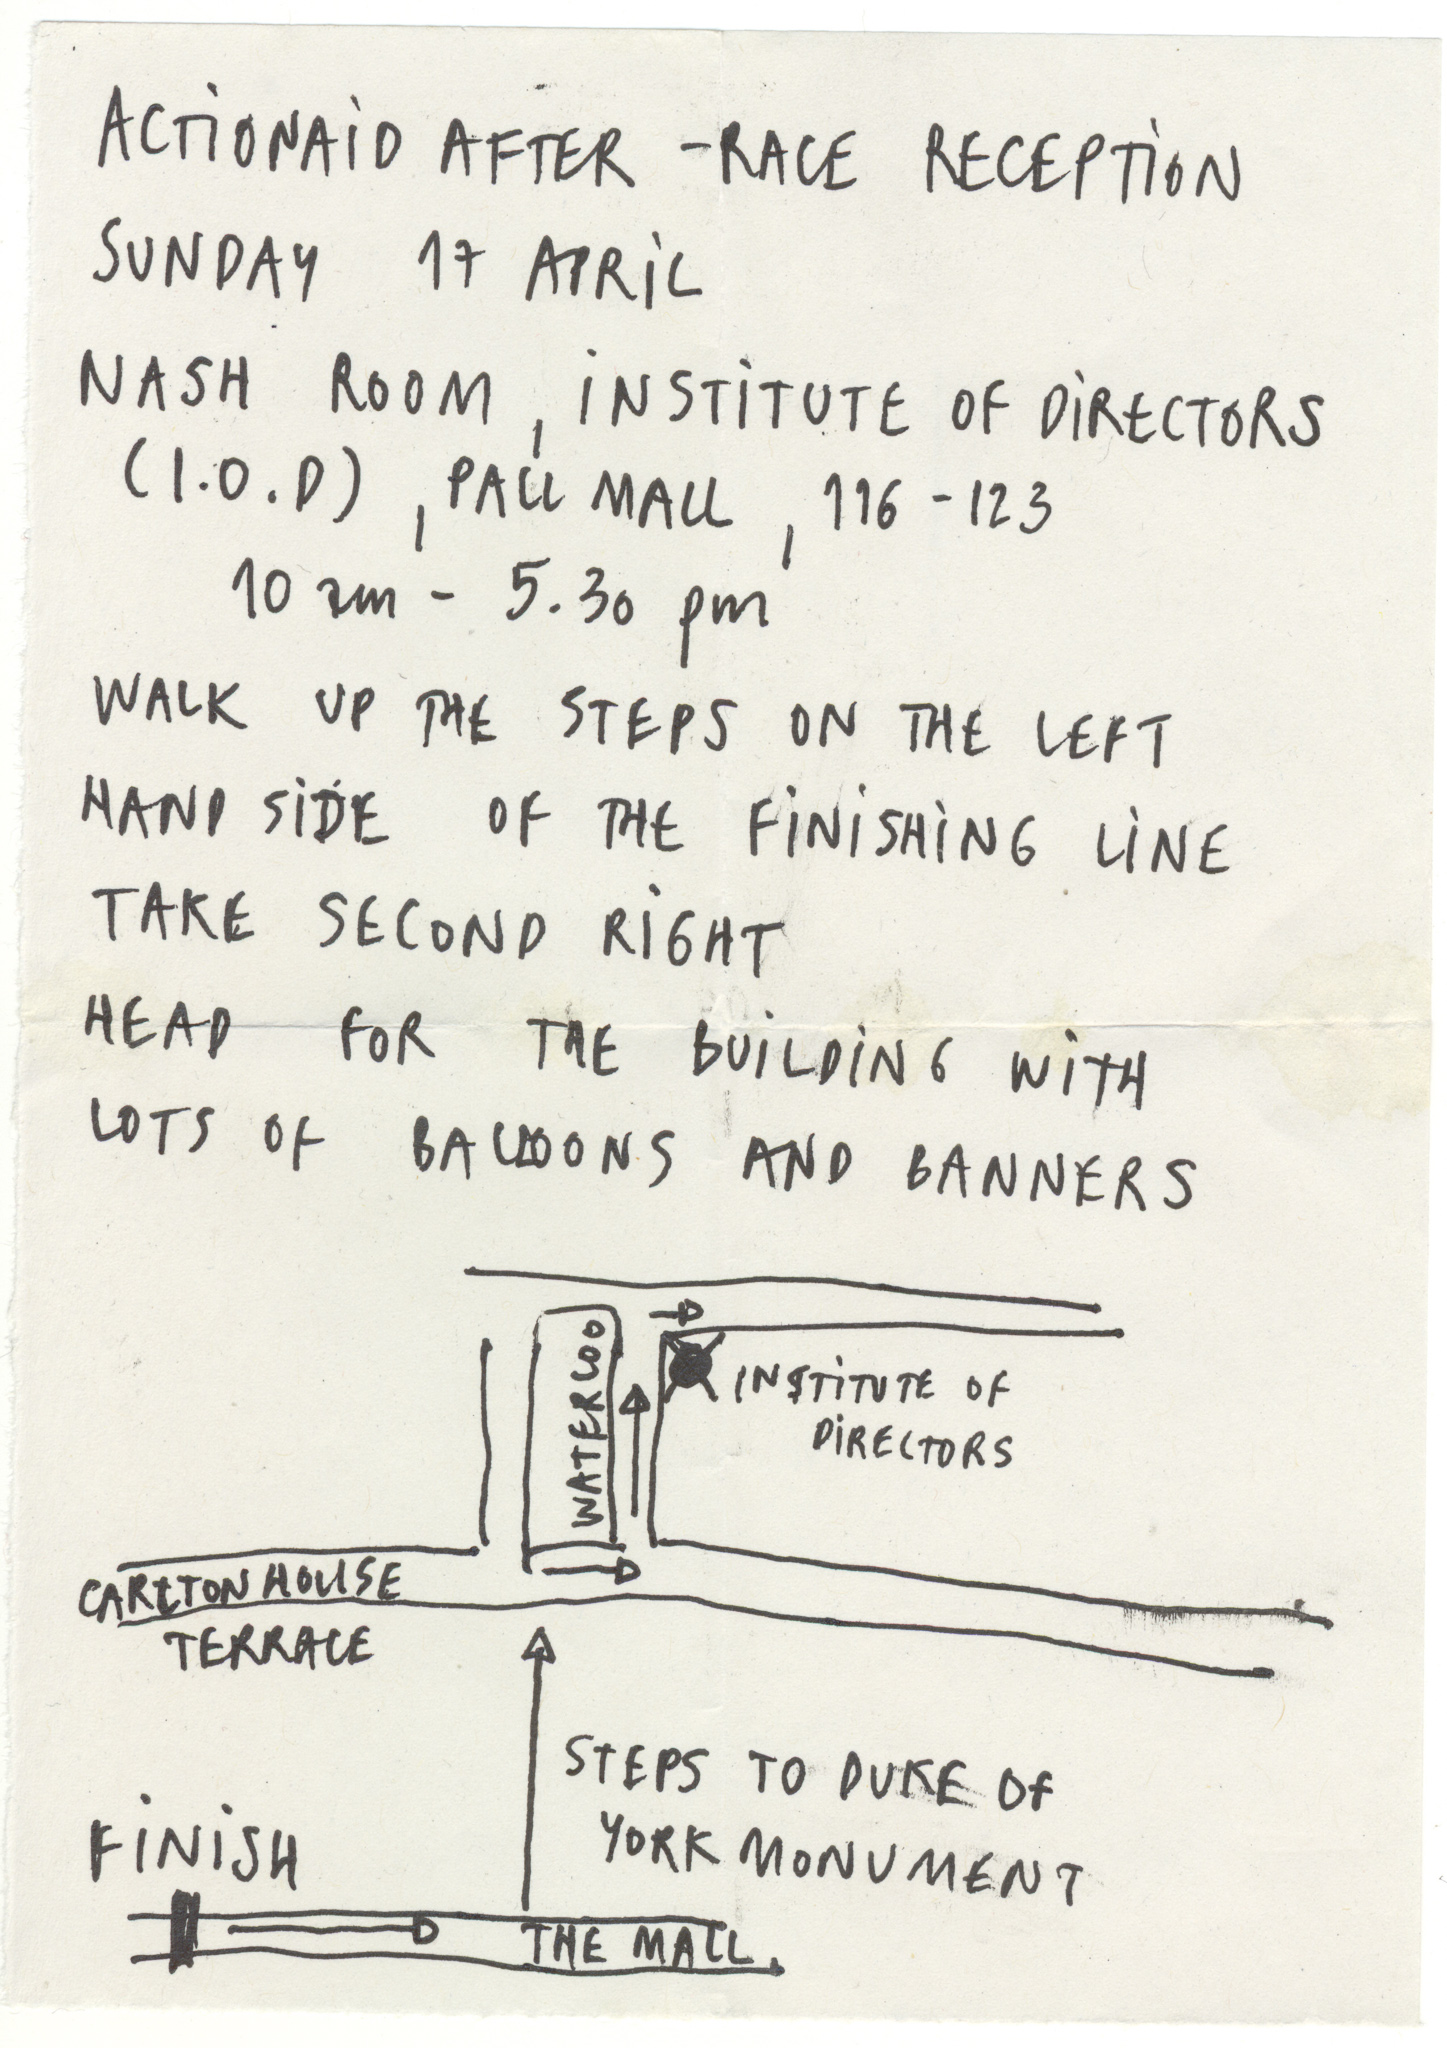 ACTiONAiD AFTER -RACE RECEPTiON
SUNDAY 17 APRiL
NASH ROOM, iNSTiTUTE OF DiRECTORS
(I.O.D), PALL MALL, 116-123
10 am - 5.30 pm
WALK UP THE STEPS ON THE LEFT
HAND SiDE OF THE FiNiSHiNG LiNE
TAKE SECOND RiGHT
HEAD FOR THE BUiLDiNG WiTH
LOTS OF BALLOONS AND BANNERS
WATERLOO
iNSTiTUTE OF
DiRECTORS
CARLTON HOUSE
TERRACE
STEPS TO DUKE OF
YORK MONUMENT
FiNiSH
THE MALL.